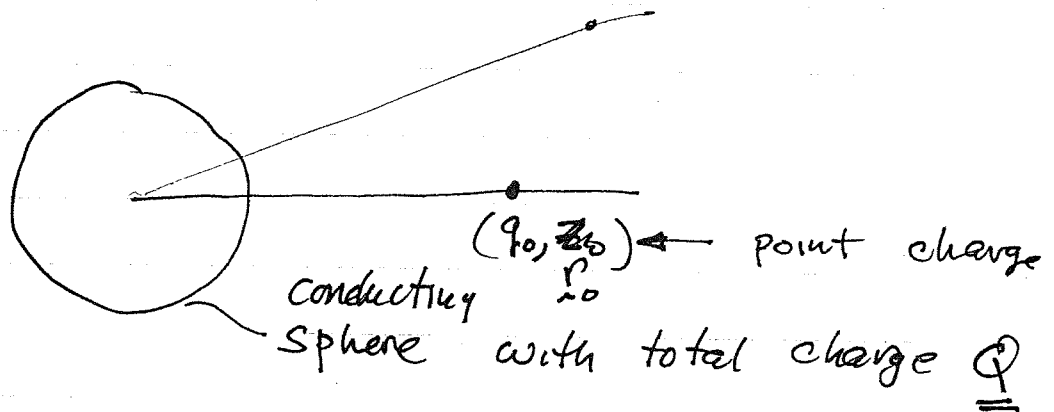 (q₀, r₀) ← point charge
conducting
sphere with total charge Q